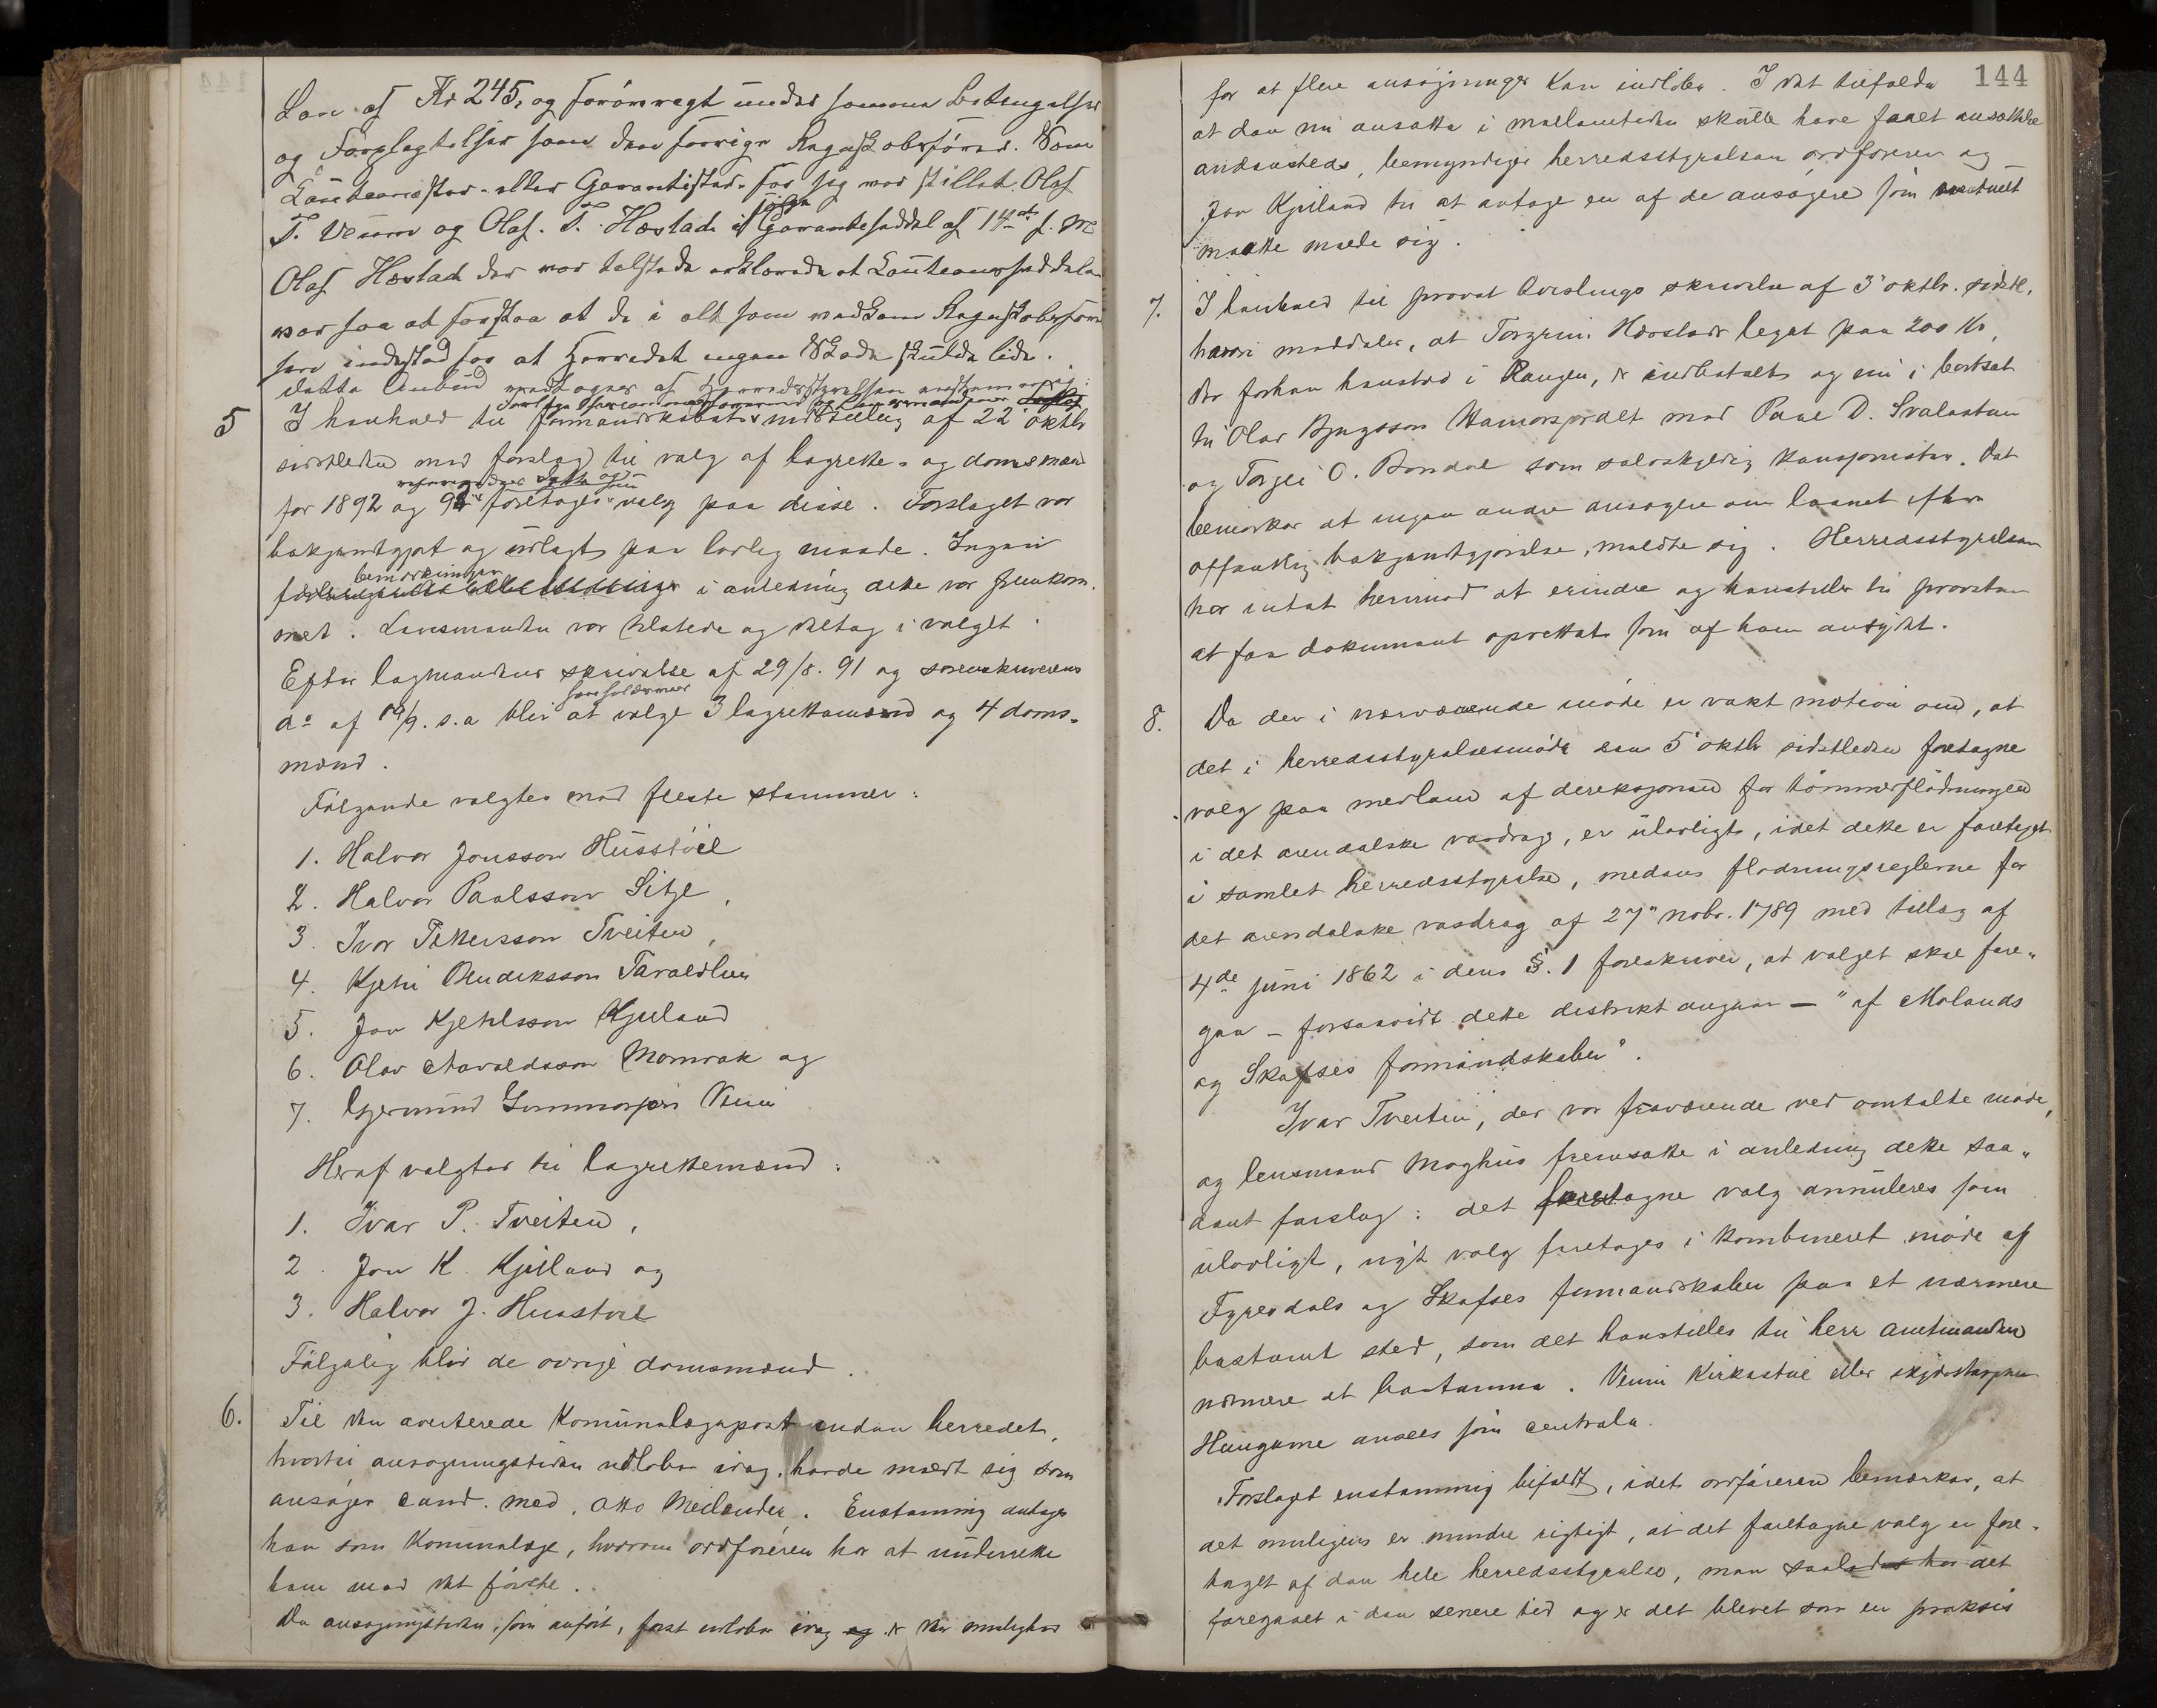 Løn af Kr 245, og forøvrigt under samme Betingelser
og Forpligtelser som den forrige Regnskabsfører. Som
Kautionister eller Garantister for sig var stillet Olaf
T. Veum og Olaf. T. Hæstad ifølge Garantiseddel af 14de f. M.
Olaf Hæstad der var tilstede erklærede at Kautionsseddelen
var saa at forstaa at de i alt som vedkom Regnskabsføre
sen indestod for at Herredet ingen Skade skulde lide.
dette Anbud modtages af Herredsstyrelsen
5 I henhold til formandskabets indstilling af 22 oktbr
sidstleden med forslag til valg af lagrette- og domsmænd
for 1892 og 93 foretages valg paa disse. Forslaget var
bekjendtgjort og udlagt paa lovlig maade. Ingen
bemærkninger
i anledning dette var fremkom
met. Lensmanden var tilstede og deltog i valget.
Efter lagmandens skrivelse af 29/8. 91 og sorenskriverens
do af 19/9. s.a blir at vælge 3 lagrettemænd og 4 doms-
mænd.
Følgende valgtes med fleste stemmer:
1. Halvor Jonsson Husstøil
2. Halvor Paulsson Sitje,
3. Ivar Pettersson Tveiten,
4. Kjetil Øendreksson Taraldlien
5. Jon Kjetilsson Kjiland
6. Olav Haraldsson Momrak og
7. Gjermund Gunnarsson Veum
Heraf valgtes til lagrettemænd:
1. Ivar P. Tveiten,
2. Jon K. Kjiland og
3. Halvor J. Husstøil
Følgelig blir de øvrige domsmænd.
6. Til den averterede Komunelægepost inden herredet,
hvortil ansøgningstiden udløber idag, havde meldt sig som
ansøger cand. med. Otto Meilænder. Enstemmig antages
han som Komunelæge, hvorom ordføreren har at underrette
ham med det første.
Da ansøgningstiden, som anført, først udløber idag og er der mulighed
144
for at flere ansøgninger kan indløbe. I det tilfælde
at den nu ansatte i mellemtiden skulle have faaet ansættelse
andensteds, bemyndiges herredsstyrelsen ordføreren og
Jon Kjiland til at antage en af de ansøgere som eventuelt
maatte melde sig.
7. I henhold til provst Østlings skrivelse af 3 oktbr. sidstl.,
hvori meddeles, at Torgrim Hæstads legat paa 200 Kr,
der forhen henstod i Haugen, er indbetalt og nu i bortsat
til Olav Bjugsson Hamorsjordet med Paul D. Svalastuen
og Torgei O. Bondal som selvskyldig kausjonister. Det
bemærkes at ingen andre ansøgere om laanet efter
offentlig bekjendtgjørelse, meldte sig. Herredsstyrelsen
har intet herimod at erindre og henstiller til provsten
at faa dokument oprettet som af ham antydet.
8. Da der i nærværende møde er vakt motion om, at
det i herredsstyrelsesmøde den 5 oktbr sidstleden foretagne
valg paa medlem af direksjonen for tømmerflødningen
i det arendalske vasdrag, er ulovligt, idet dette er foretaget
i samlet herredsstyrelse, medens flødningsreglerne for
det arendalske vasdrag af 27" nobr. 1789 med tillæg af
4de juni 1862 i dens §. 1 foreskriver, at valget skal fore-
gaa – forsaavidt dette distrikt angaar – "af Molands
og Skafses formandskaber".
Ivar Tveiten, der var fraværende ved omtalte møde,
og lensmand Moghus fremsatte i anledning dette saa-
dant forslag: det foretagne valg annuleres som
ulovligt, nyt valg foretages i kombineret møde af
Fyresdals og Skafses formandskaber paa et nærmere
bestemt sted, som det henstilles til herr amtmanden
nærmere at bestemme. Veum Kirkestøl eller skydsstasjonen
Haugene ansees som centrale.
Forslaget enstemmig bifaldt, idet ordføreren bemærker, at
det muligens er mindre rigtigt, at det foretagne valg er fore-
taget af den hele herredsstyrelse, men saaledes har det
foregaaet i den senere tid og er det blevet som en praksis